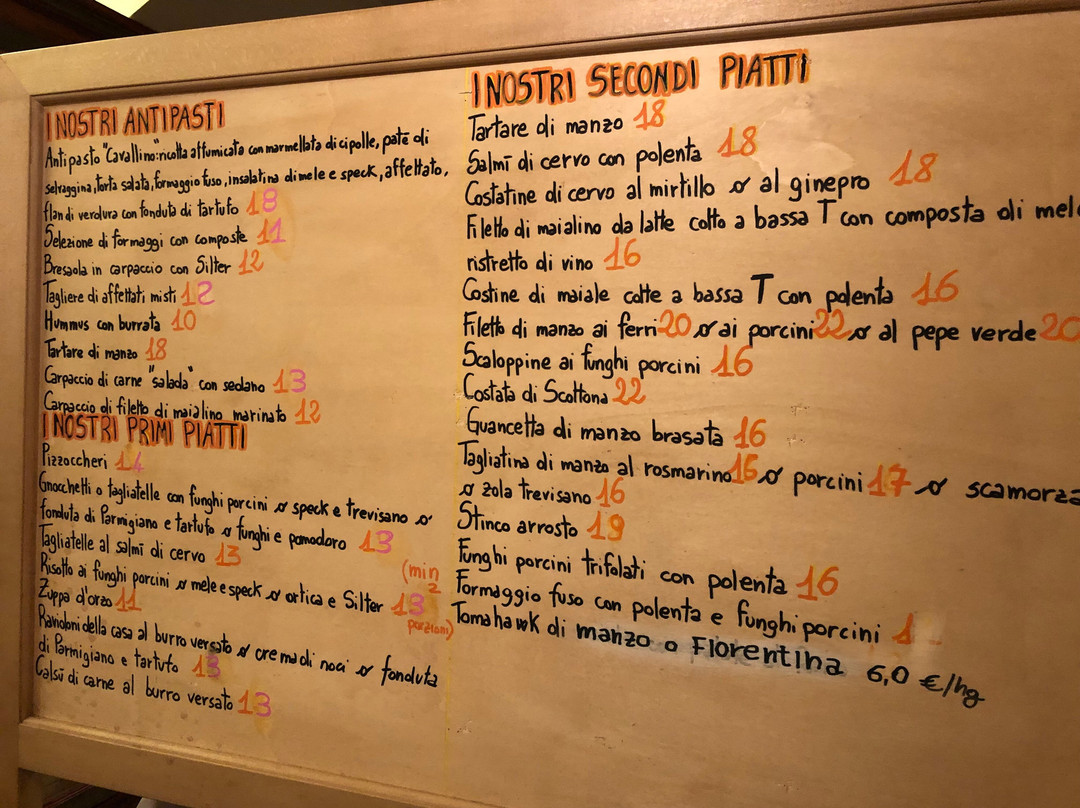 I NOSTRI ANTIPASTI
Antipasto "Cavallino": ricotta affumicata con marmellata di cipolle, patè di
selvaggina, torta salata, formaggio fuso, insalatina di mele e speck, affettato,
flan di verdura con fonduta di tartufo 18
Selezione di formaggi con composte 11
Bresaola in carpaccio con Silter 12
Tagliere di affettati misti 12
Hummus con burrata 10
Tartare di manzo 18
Carpaccio di carne "salada" con sedano 13
Carpaccio di filetto di maialino marinato 12
I NOSTRI PRIMI PIATTI
Pizzoccheri 14
Gnocchetti o tagliatelle con funghi porcini o speck e trevisano o
fonduta di Parmigiano e tartufo o funghi e pomodoro 13
Tagliatelle al salmì di cervo 13
Risotto ai funghi porcini o mele e speck o ortica e Silter 13 (min 2 porzioni)
Zuppa d'orzo 11
Ravioloni della casa al burro versato o crema di noci o fonduta
di Parmigiano e tartufo 13
Calsù di carne al burro versato 13
I NOSTRI SECONDI PIATTI
Tartare di manzo 18
Salmì di cervo con polenta 18
Costatine di cervo al mirtillo o al ginepro 18
Filetto di maialino da latte cotto a bassa T con composta di mele
ristretto di vino 16
Costine di maiale cotte a bassa T con polenta 16
Filetto di manzo ai ferri 20 o ai porcini 22 o al pepe verde 20
Scaloppine ai funghi porcini 16
Costata di Scottona 22
Guancetta di manzo brasata 16
Tagliatina di manzo al rosmarino 16 o porcini 17 o scamorza
o zola trevisano 16
Stinco arrosto 19
Funghi porcini trifolati con polenta 16
Formaggio fuso con polenta e funghi porcini
Tomahawk di manzo o Fiorentina 6,0 €/hg